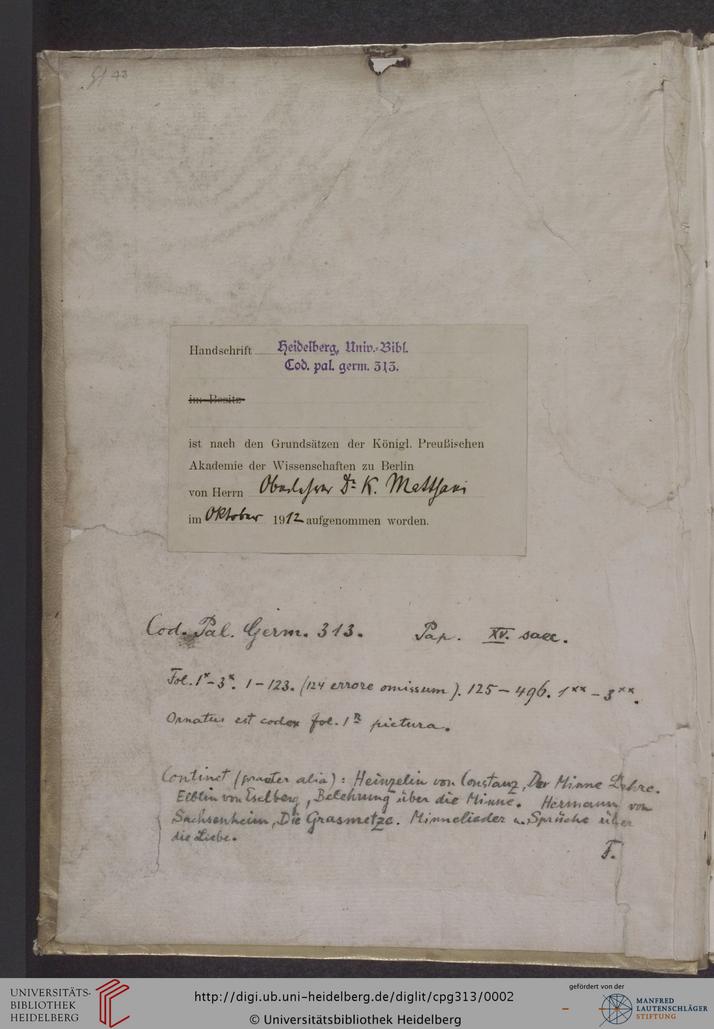 43
Handschrift Heidelberg, Univ.-Bibl.
Cod. pal. germ. 313.
im Besitz
ist nach den Grundsätzen der Königl. Preußischen
Akademie der Wissenschaften zu Berlin
von Herrn Oberlehrer Dr. K. Matthaei
im Oktober 1912 aufgenommen worden.
Cod. Pal. Germ. 313. Pap. XV. saec.
Fol. 1*-3*. 1-123. (124 errore omissum). 125-496. 1**-3**.
Ornatus est codex fol. 1 R pictura.
Continet (praeter alia): Heinzelin von Constanz, Der Minne Lehre.
Elblin von Eselberg, Belehrung über die Minne. Hermann von
Sachsenheim, Die Grasmetze. Minnelieder u. Sprüche über
die Liebe.
T.
UNIVERSITÄTS-
BIBLIOTHEK
HEIDELBERG
http://digi.ub.uni-heidelberg.de/diglit/cpg313/0002
© Universitätsbibliothek Heidelberg
gefördert von der
MANFRED
LAUTENSCHLÄGER
STIFTUNG